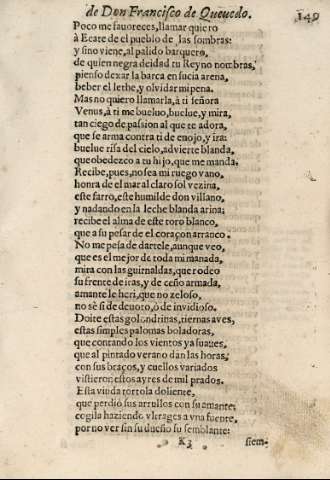 de Don Francisco de Queuedo. 149
Poco me fauoreces, llamar quiero
à Ecate de el pueblo de las sombras:
y sino viene, al palido barquero,
de quien negra deidad tu Reyno nombras,
pienso dexar la barca en sucia arena,
beber el lethe, y olvidar mi pena.
Mas no quiero llamarla, à ti señora
Venus, à ti me bueluo, buelue, y mira,
tan ciego de passion al que te adora,
que se arma contra ti de enojo, y ira:
buelue risa del cielo, advierte blanda,
que obedezco a tu hijo, que me manda.
Recibe, pues, no sea mi ruego vano,
honra de el mar al claro sol vezina,
este farro, este humilde don villano,
y nadando en la leche blanda arina;
recibe el alma de este toro blanco,
que a su pesar de el coraçon arranco.
No me pesa de dartele, aunque veo,
que es el mejor de toda mi manada,
mira con las guirnaldas, que rodeo
su frente de iras, y de ceño armada,
amante le heri, que no zeloso,
no sè si de deuoto, ò de invidioso.
Doite estas golondrinas, tiernas aves,
estas simples palomas boladoras,
que contando los vientos ya suaues,
que al pintado verano dan las horas,
con sus braços, y cuellos variados
vistieron estos ayres de mil prados.
Esta viuda tortola doliente,
que perdiò sus arrullos con su amante:
cogila haziendo vltrages a vna fuente,
por no ver sin su dueño su semblante:
K3 siem-